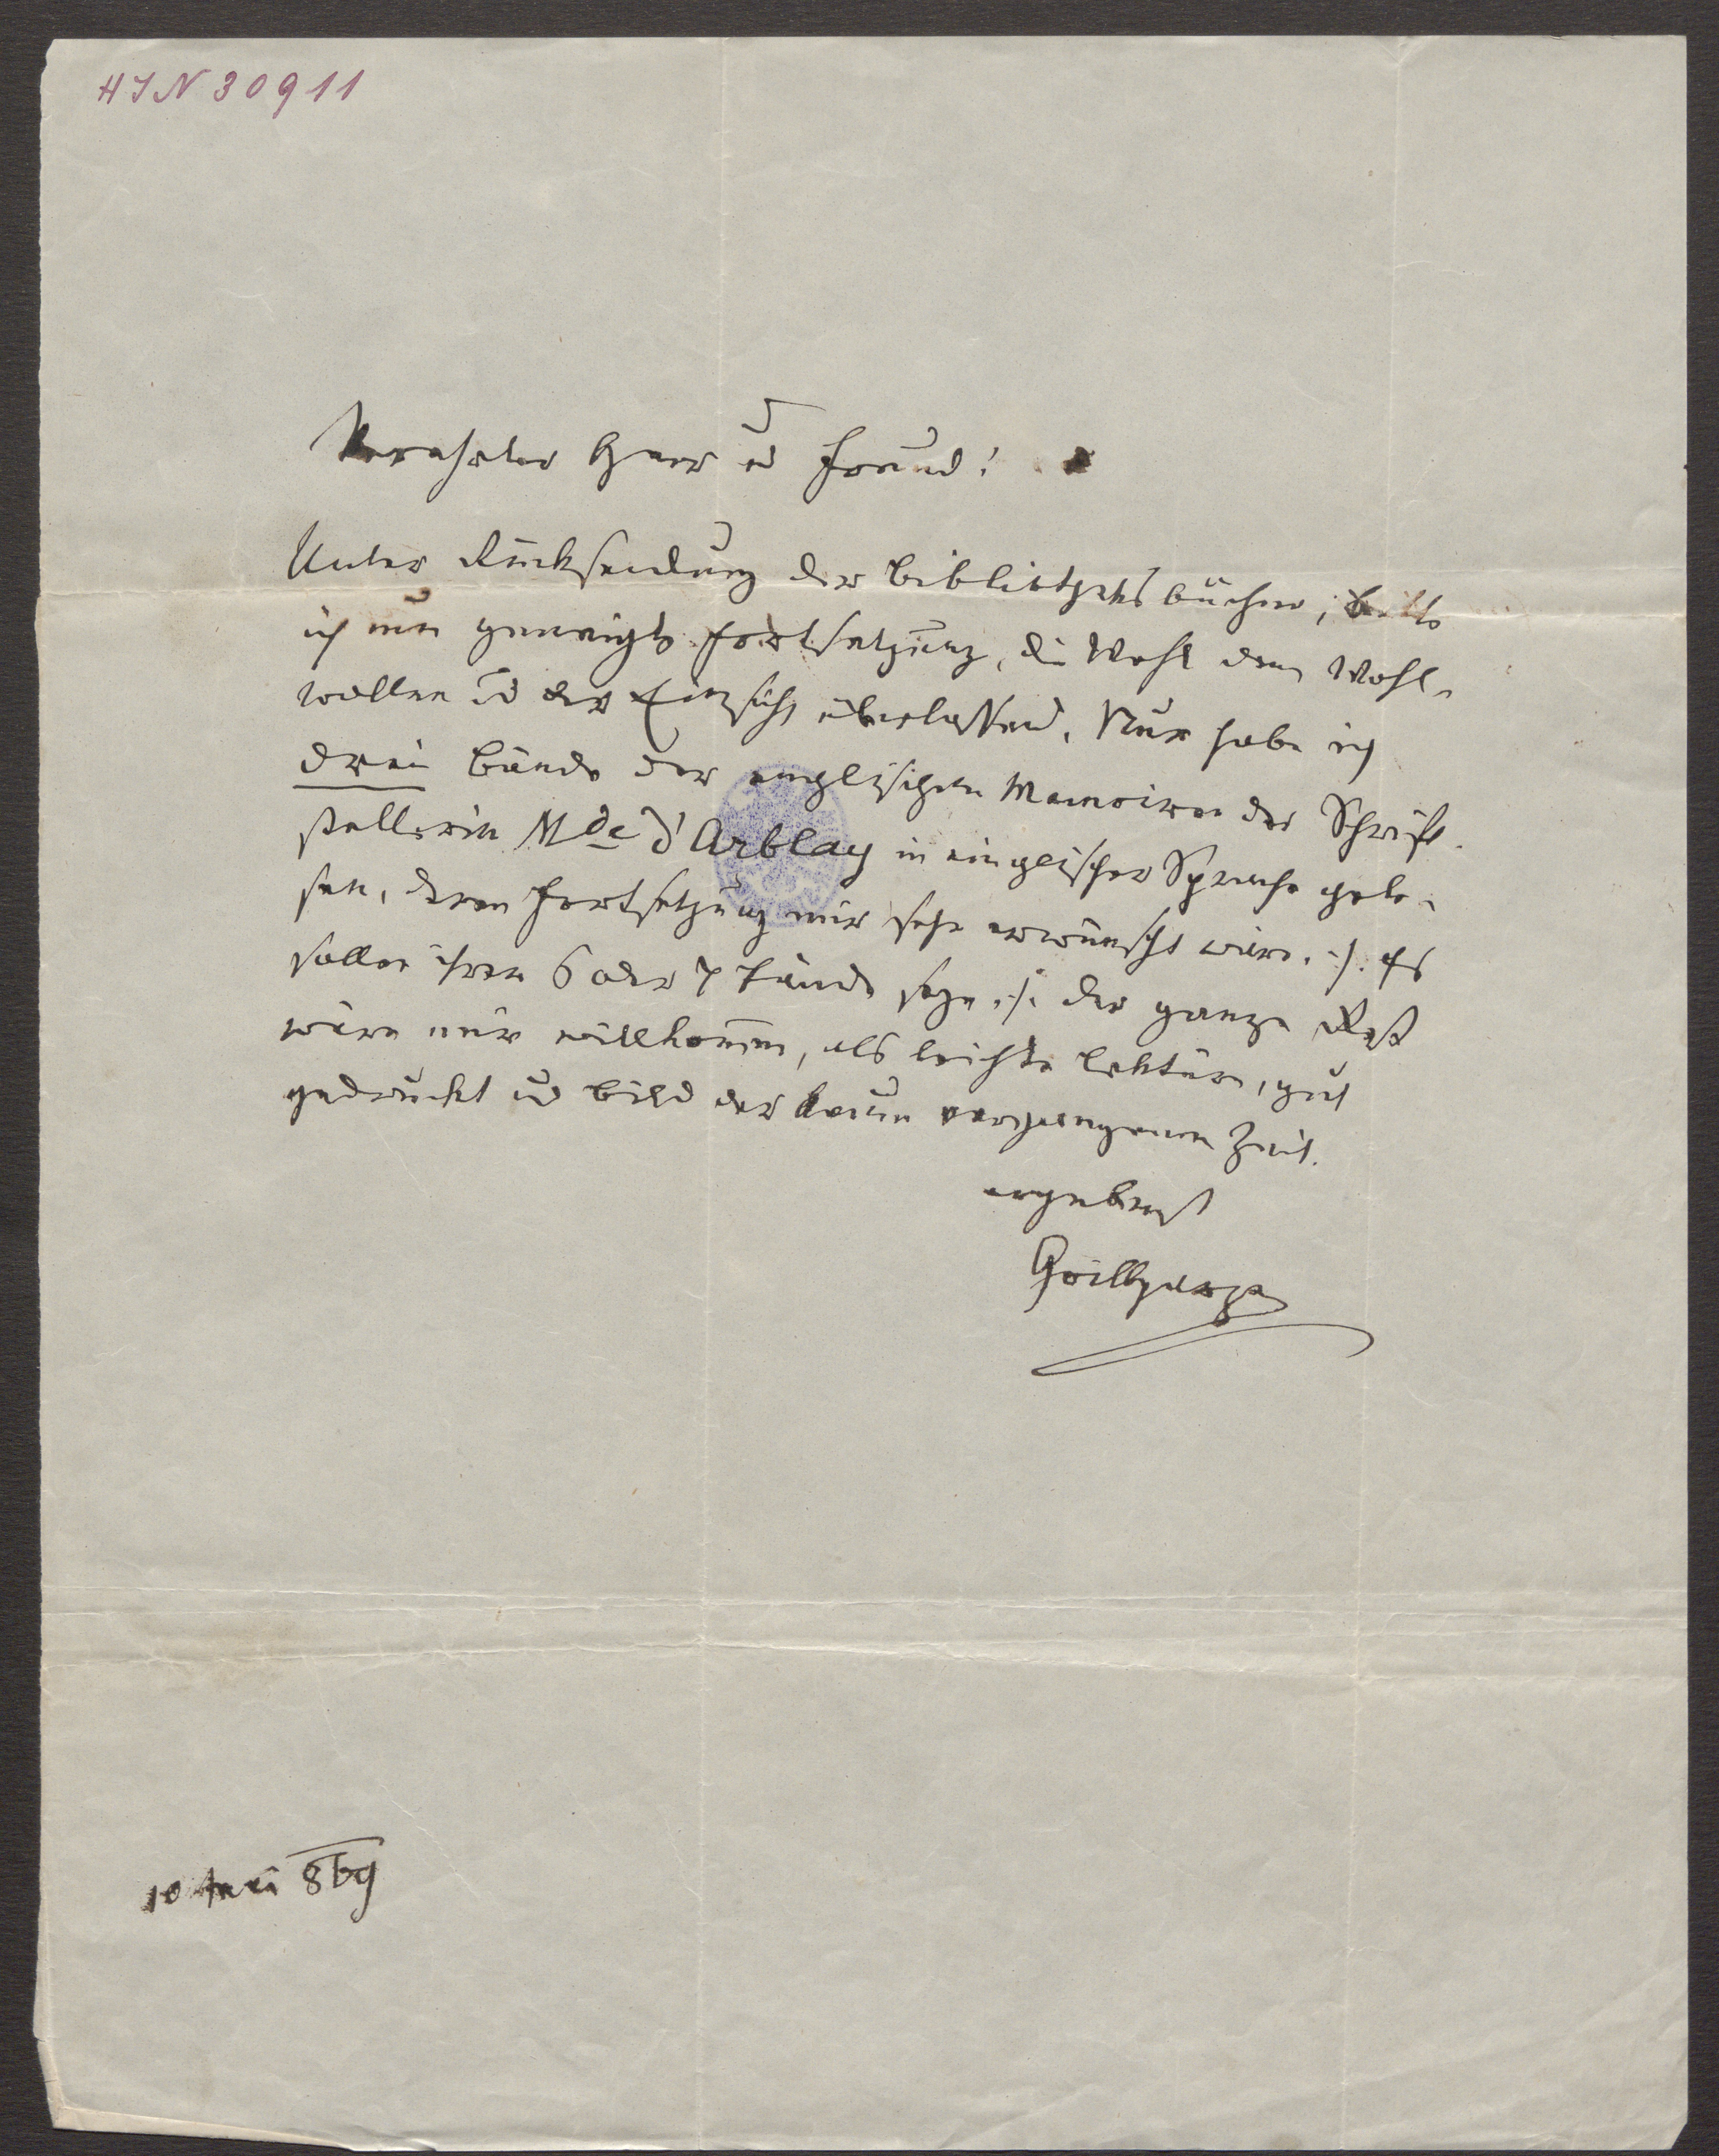 HIN 30911
Verehrter Herr u Freund!
Unter Rücksendung der Bibliotheksbücher, bitte
ich um geneigte Fortsetzung, die Wahl dem Wohl-
wollen u der Einsicht überlassend. Nur habe ich
drei Bände der englischen Memoiren der Schrift-
stellerin Mde d'Arblay in englischer Sprache gele-
sen, deren Fortsetzung mir sehr erwünscht wäre. :/: Es
sollen ihrer 6 oder 7 Bände seyn :/: der ganze Rest
wäre mir willkommen, als leichte Lektüre, gut
gedruckt u Bild der kaum vergangenen Zeit.
ergebenst
Grillparzer
10 869